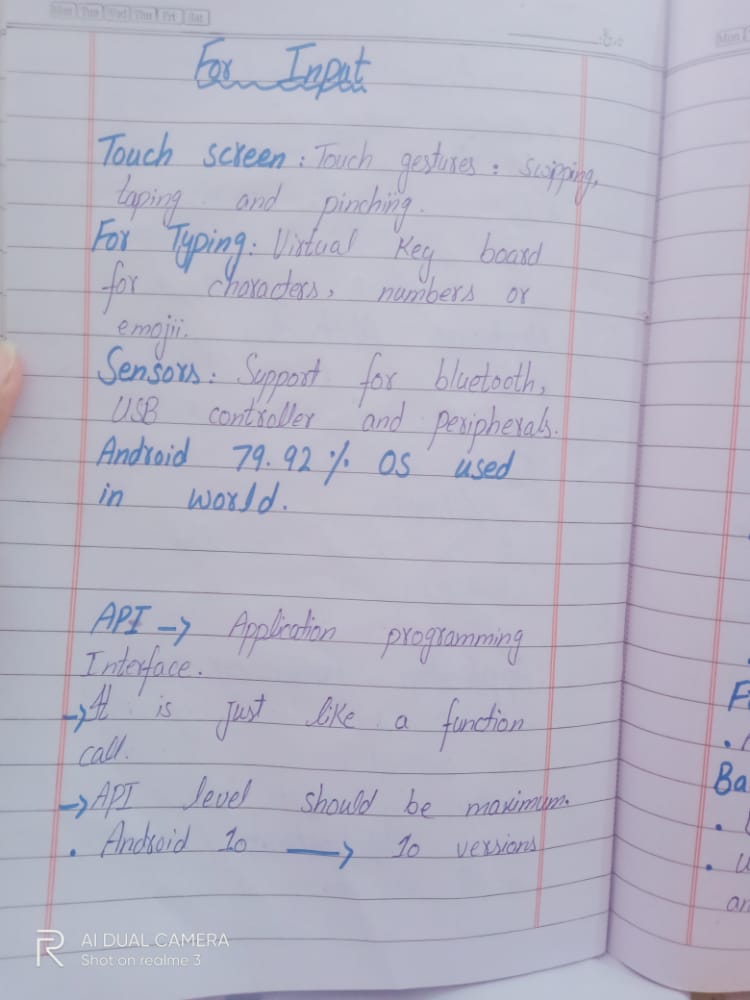 Mon Tue Wed Thu Fri Sat
For Input
Touch screen : Touch gestures : swipping,
taping and pinching.
For Typing : Virtual Key board
for characters, numbers or
emojii.
Sensors : Support for bluetooth,
USB controller and peripherals.
Android 79.92% OS used
in world.
API → Application programming
Interface.
→ It is just like a function
call.
→ API level should be maximum.
. Android 10 → 10 versions
Mon
Ba
an
AI DUAL CAMERA
Shot on realme 3